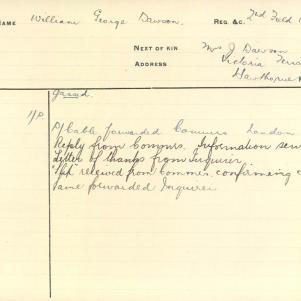 NAME William George Dawson. REG. &C. 2nd Field
NEXT OF KIN Mrs J Dawson
ADDRESS Victoria
Hawthorne
Gassed.
D/Cable forwarded Commrs London
Reply from Commrs. Information sen
Letter of thanks from Inquirer
received from Commrs. confirming c
Same forwarded Inquirer